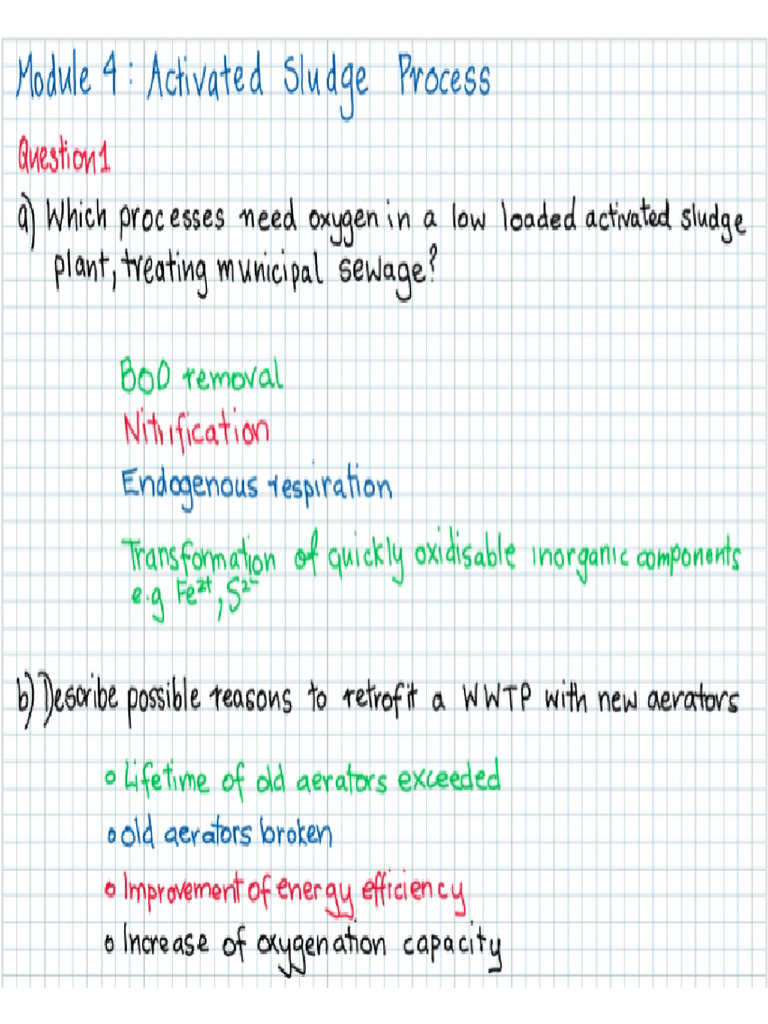 Module 4: Activated Sludge Process
Question 1
a) Which processes need oxygen in a low loaded activated sludge
plant, treating municipal sewage?
BOD removal
Nitrification
Endogenous respiration
Transformation of quickly oxidisable inorganic components
e.g Fe²⁺, S²⁻
b) Describe possible reasons to retrofit a WWTP with new aerators
o Lifetime of old aerators exceeded
o old aerators broken
o Improvement of energy efficiency
o Increase of oxygenation capacity